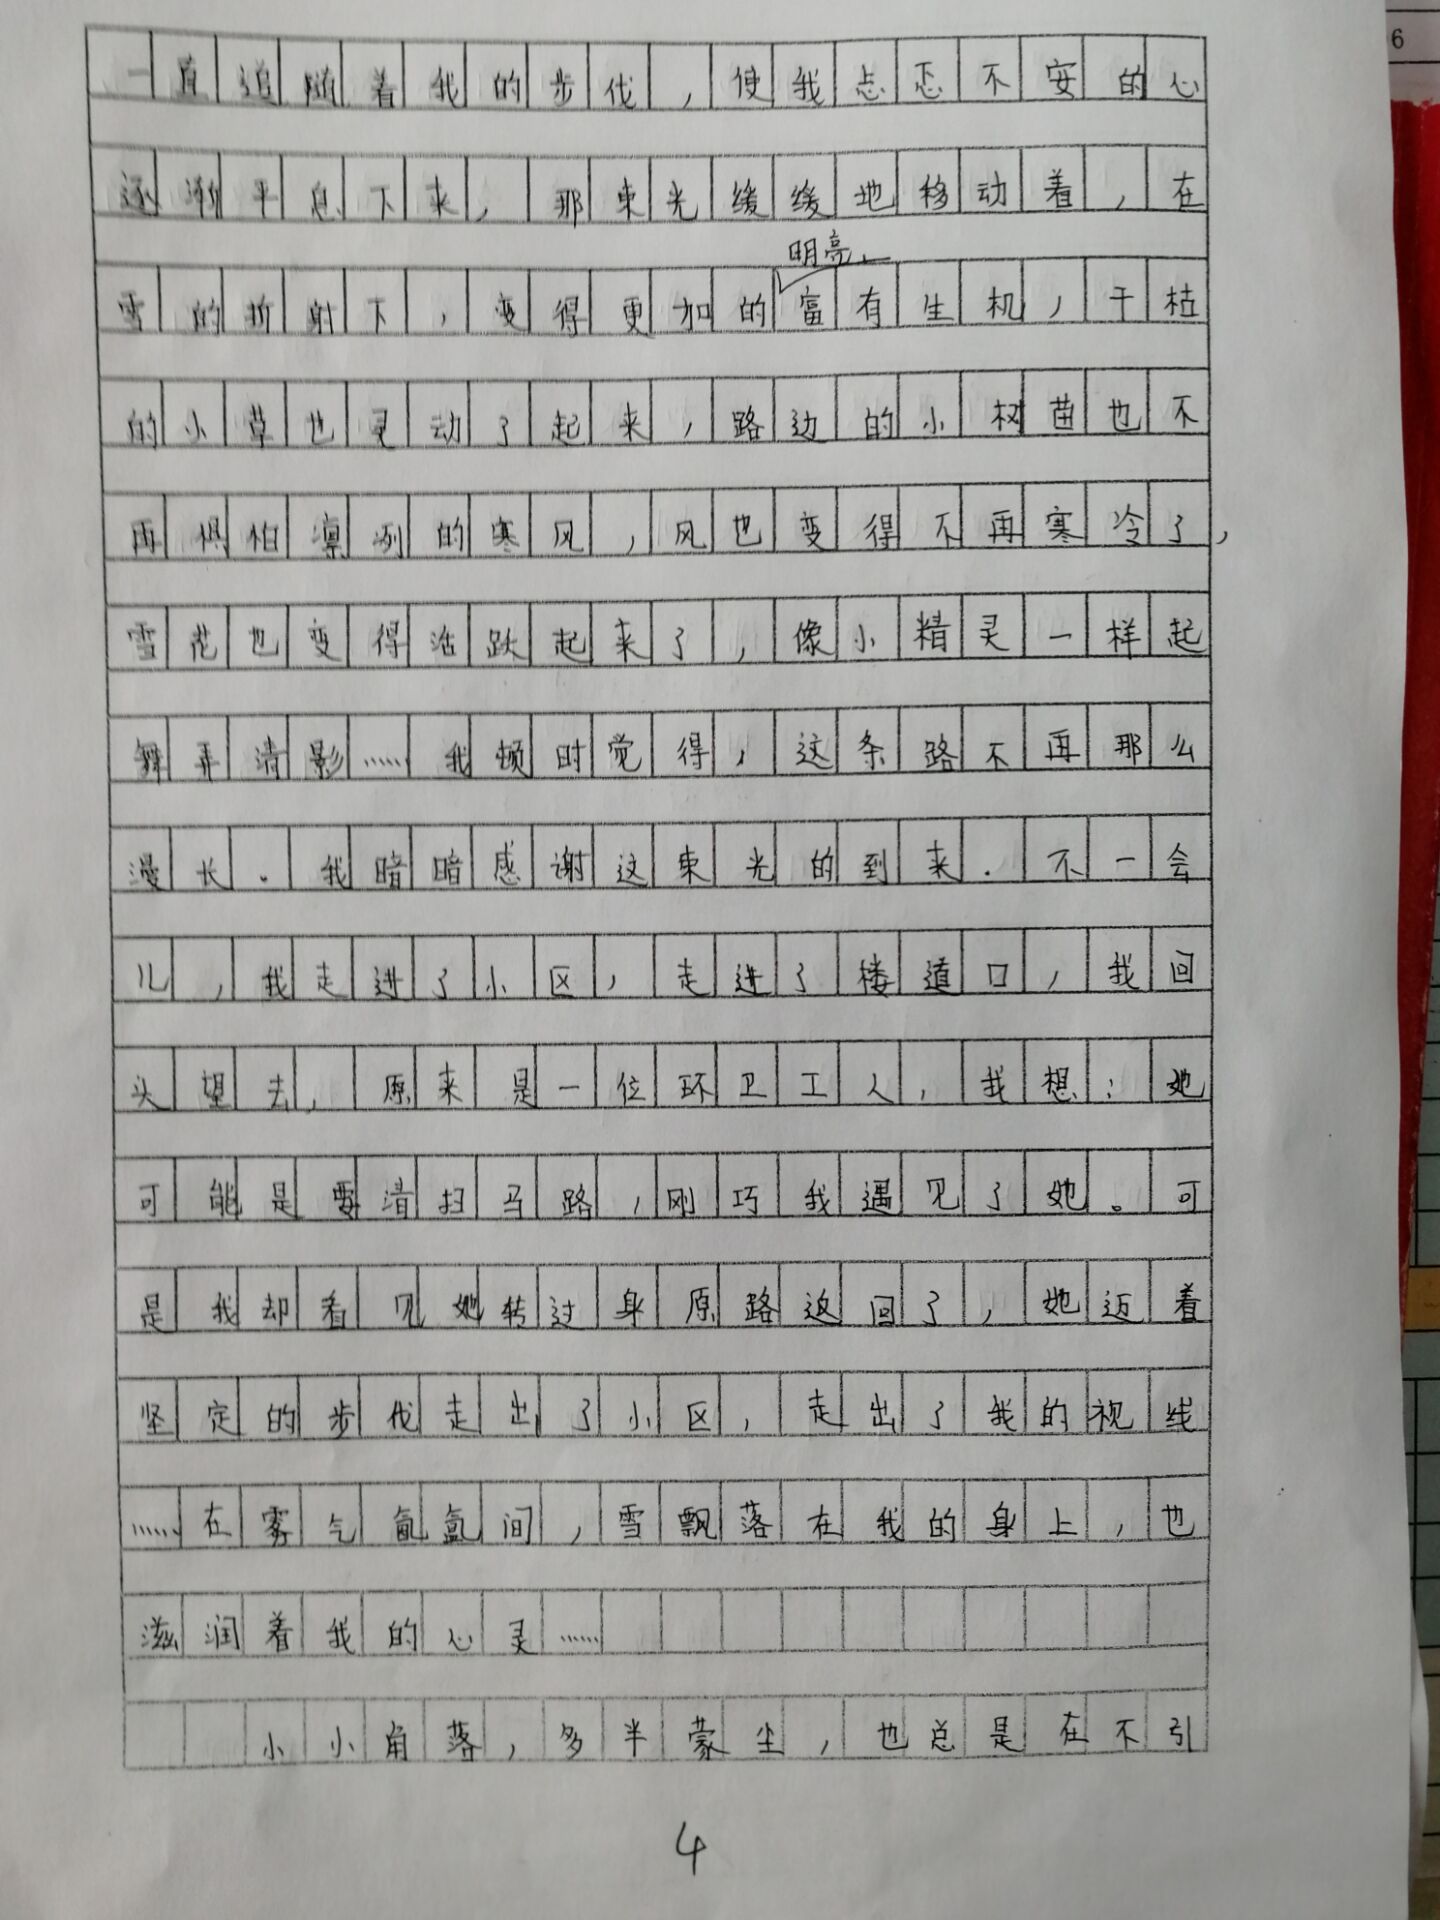 6
一直追随着我的步伐,使我忐忑不安的心
逐渐平息下来,那束光缓缓地移动着,在
明亮、
雪的折射下,变得更加的富有生机,干枯
的小草也灵动了起来,路边的小树苗也不
再惧怕凛冽的寒风,风也变得不再寒冷了,
雪花也变得活跃起来了,像小精灵一样起
舞弄清影……我顿时觉得,这条路不再那么
漫长。我暗暗感谢这束光的到来.不一会
儿,我走进了小区,走进了楼道口,我回
头望去,原来是一位环卫工人,我想:她
可能是要清扫马路,刚巧我遇见了她。可
是我却看见她转过身原路返回了,她迈着
坚定的步伐走出了小区,走出了我的视线
……在雾气氤氲间,雪飘落在我的身上,也
滋润着我的心灵……
小小角落,多半蒙尘,也总是在不引
4